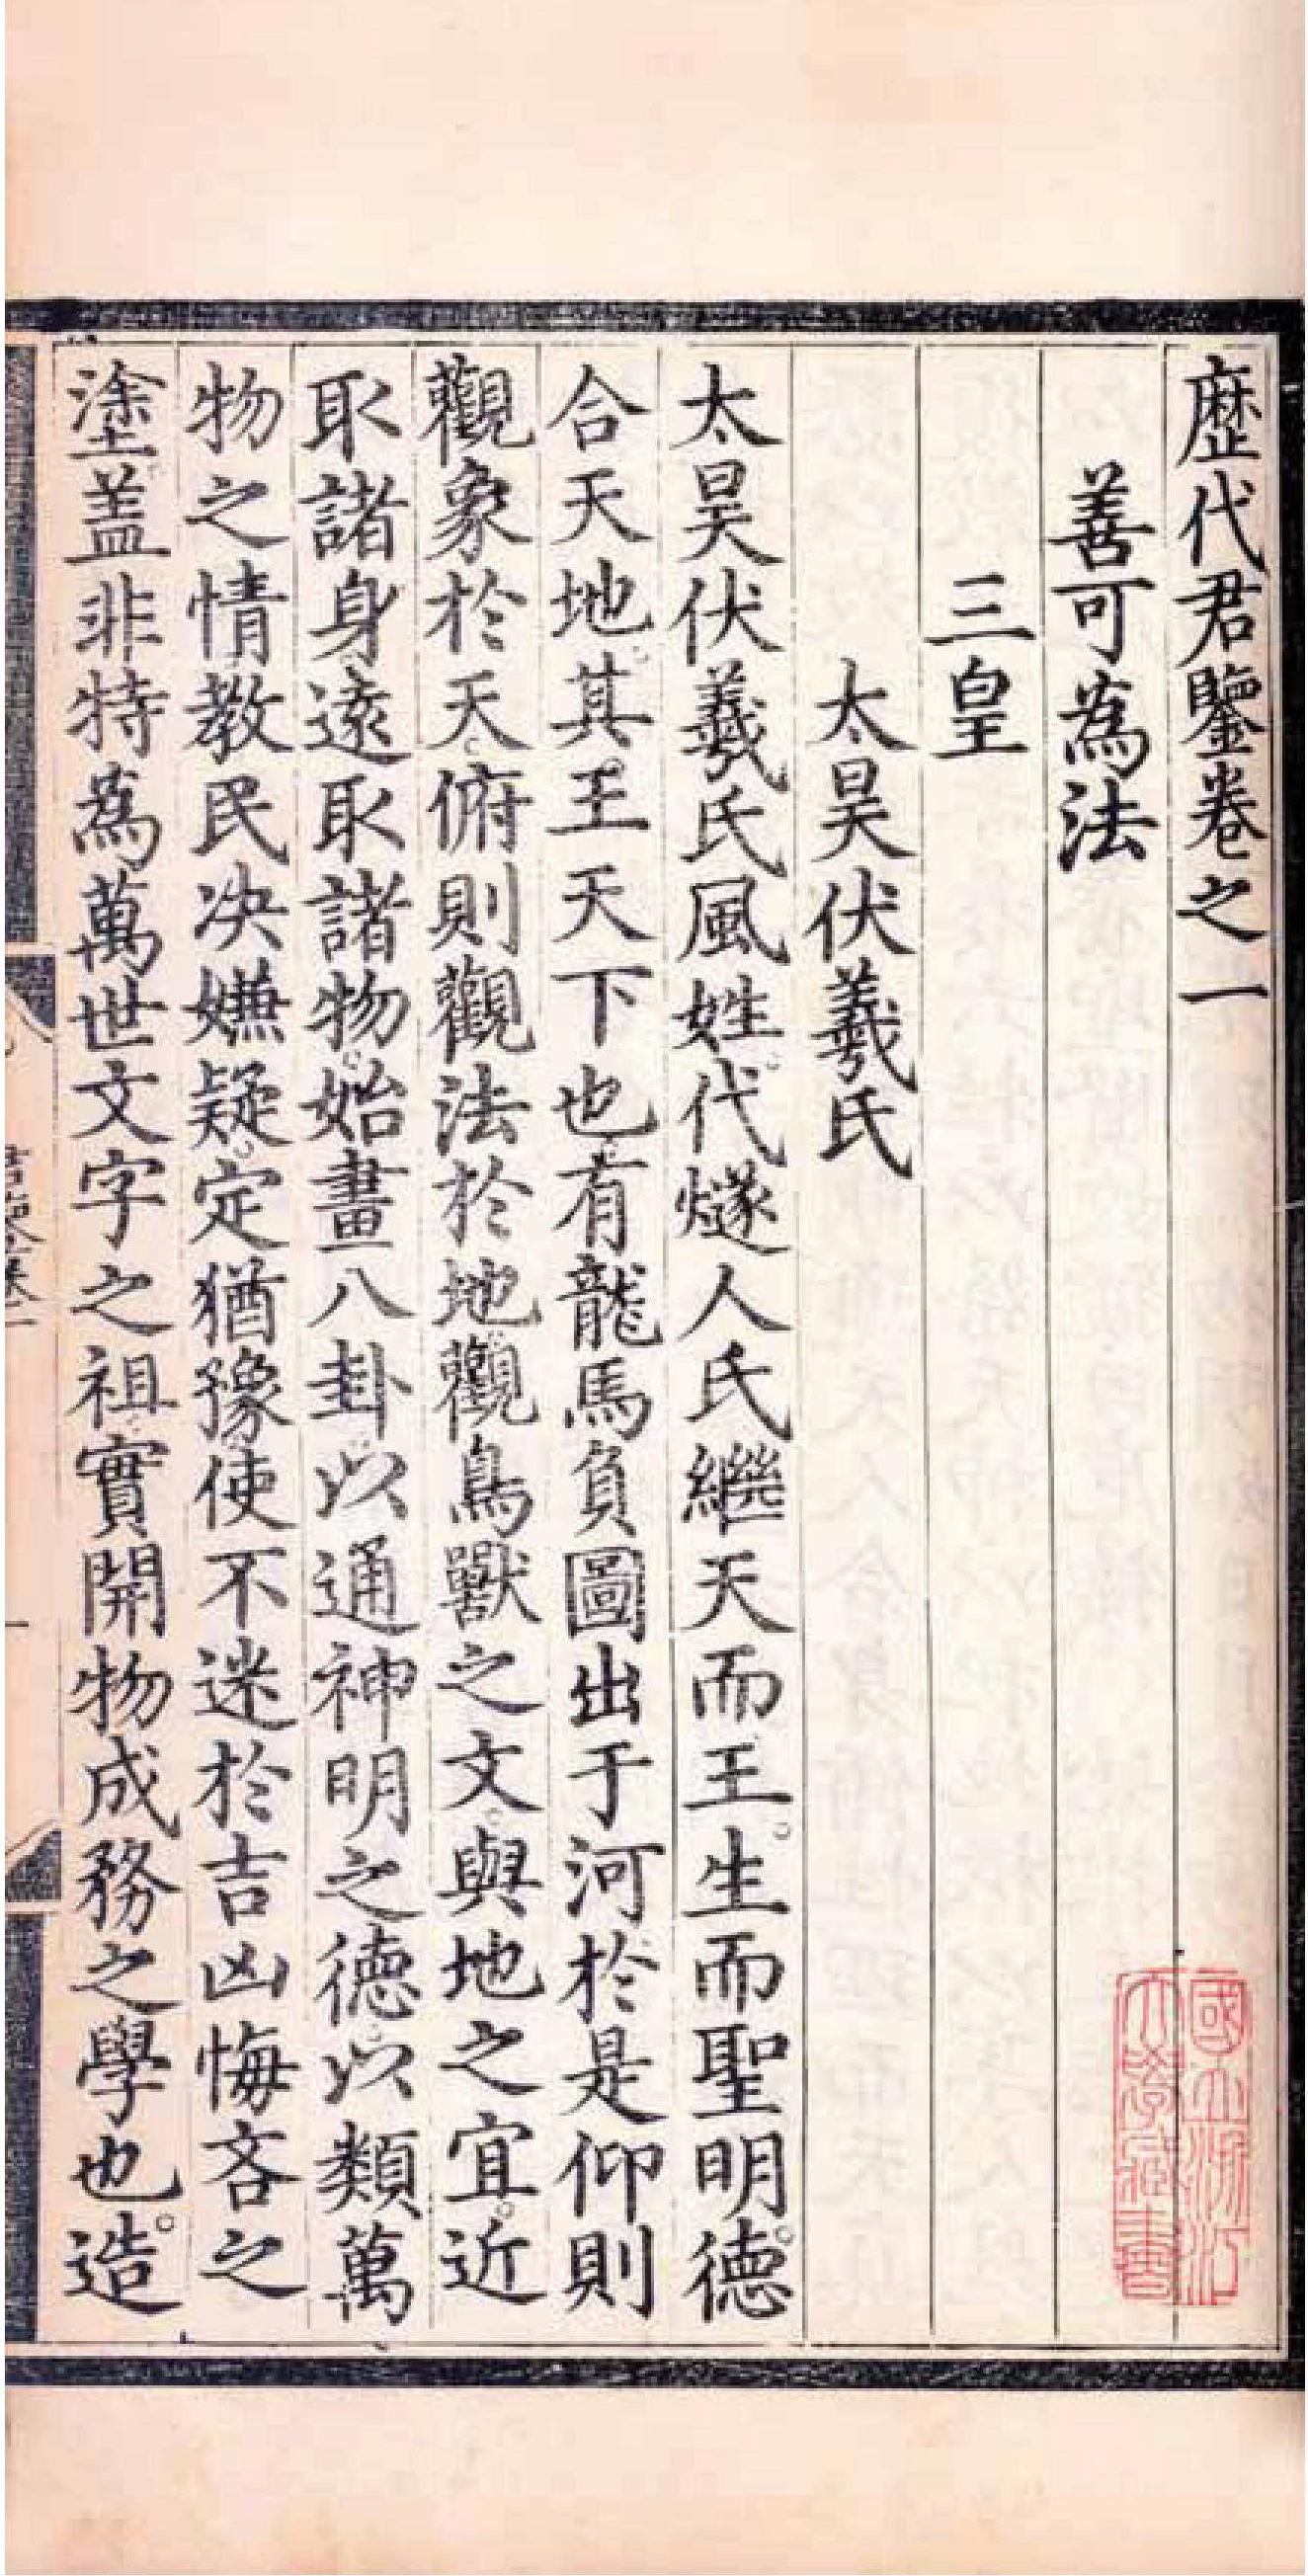 歷代君鑒卷之一
善可為法
三皇
太昊伏羲氏
太昊伏羲氏風姓代燧人氏繼天而王生而聖明德
合天地其王天下也有龍馬負圖出于河於是仰則
觀象於天俯則觀法於地觀鳥獸之文與地之宜近
取諸身遠取諸物始畫八卦以通神明之德以類萬
物之情教民决嫌疑定猶豫使不迷於吉凶悔吝之
塗盖非特為萬世文字之祖實開物成務之學也造
國立浙江
大學藏書